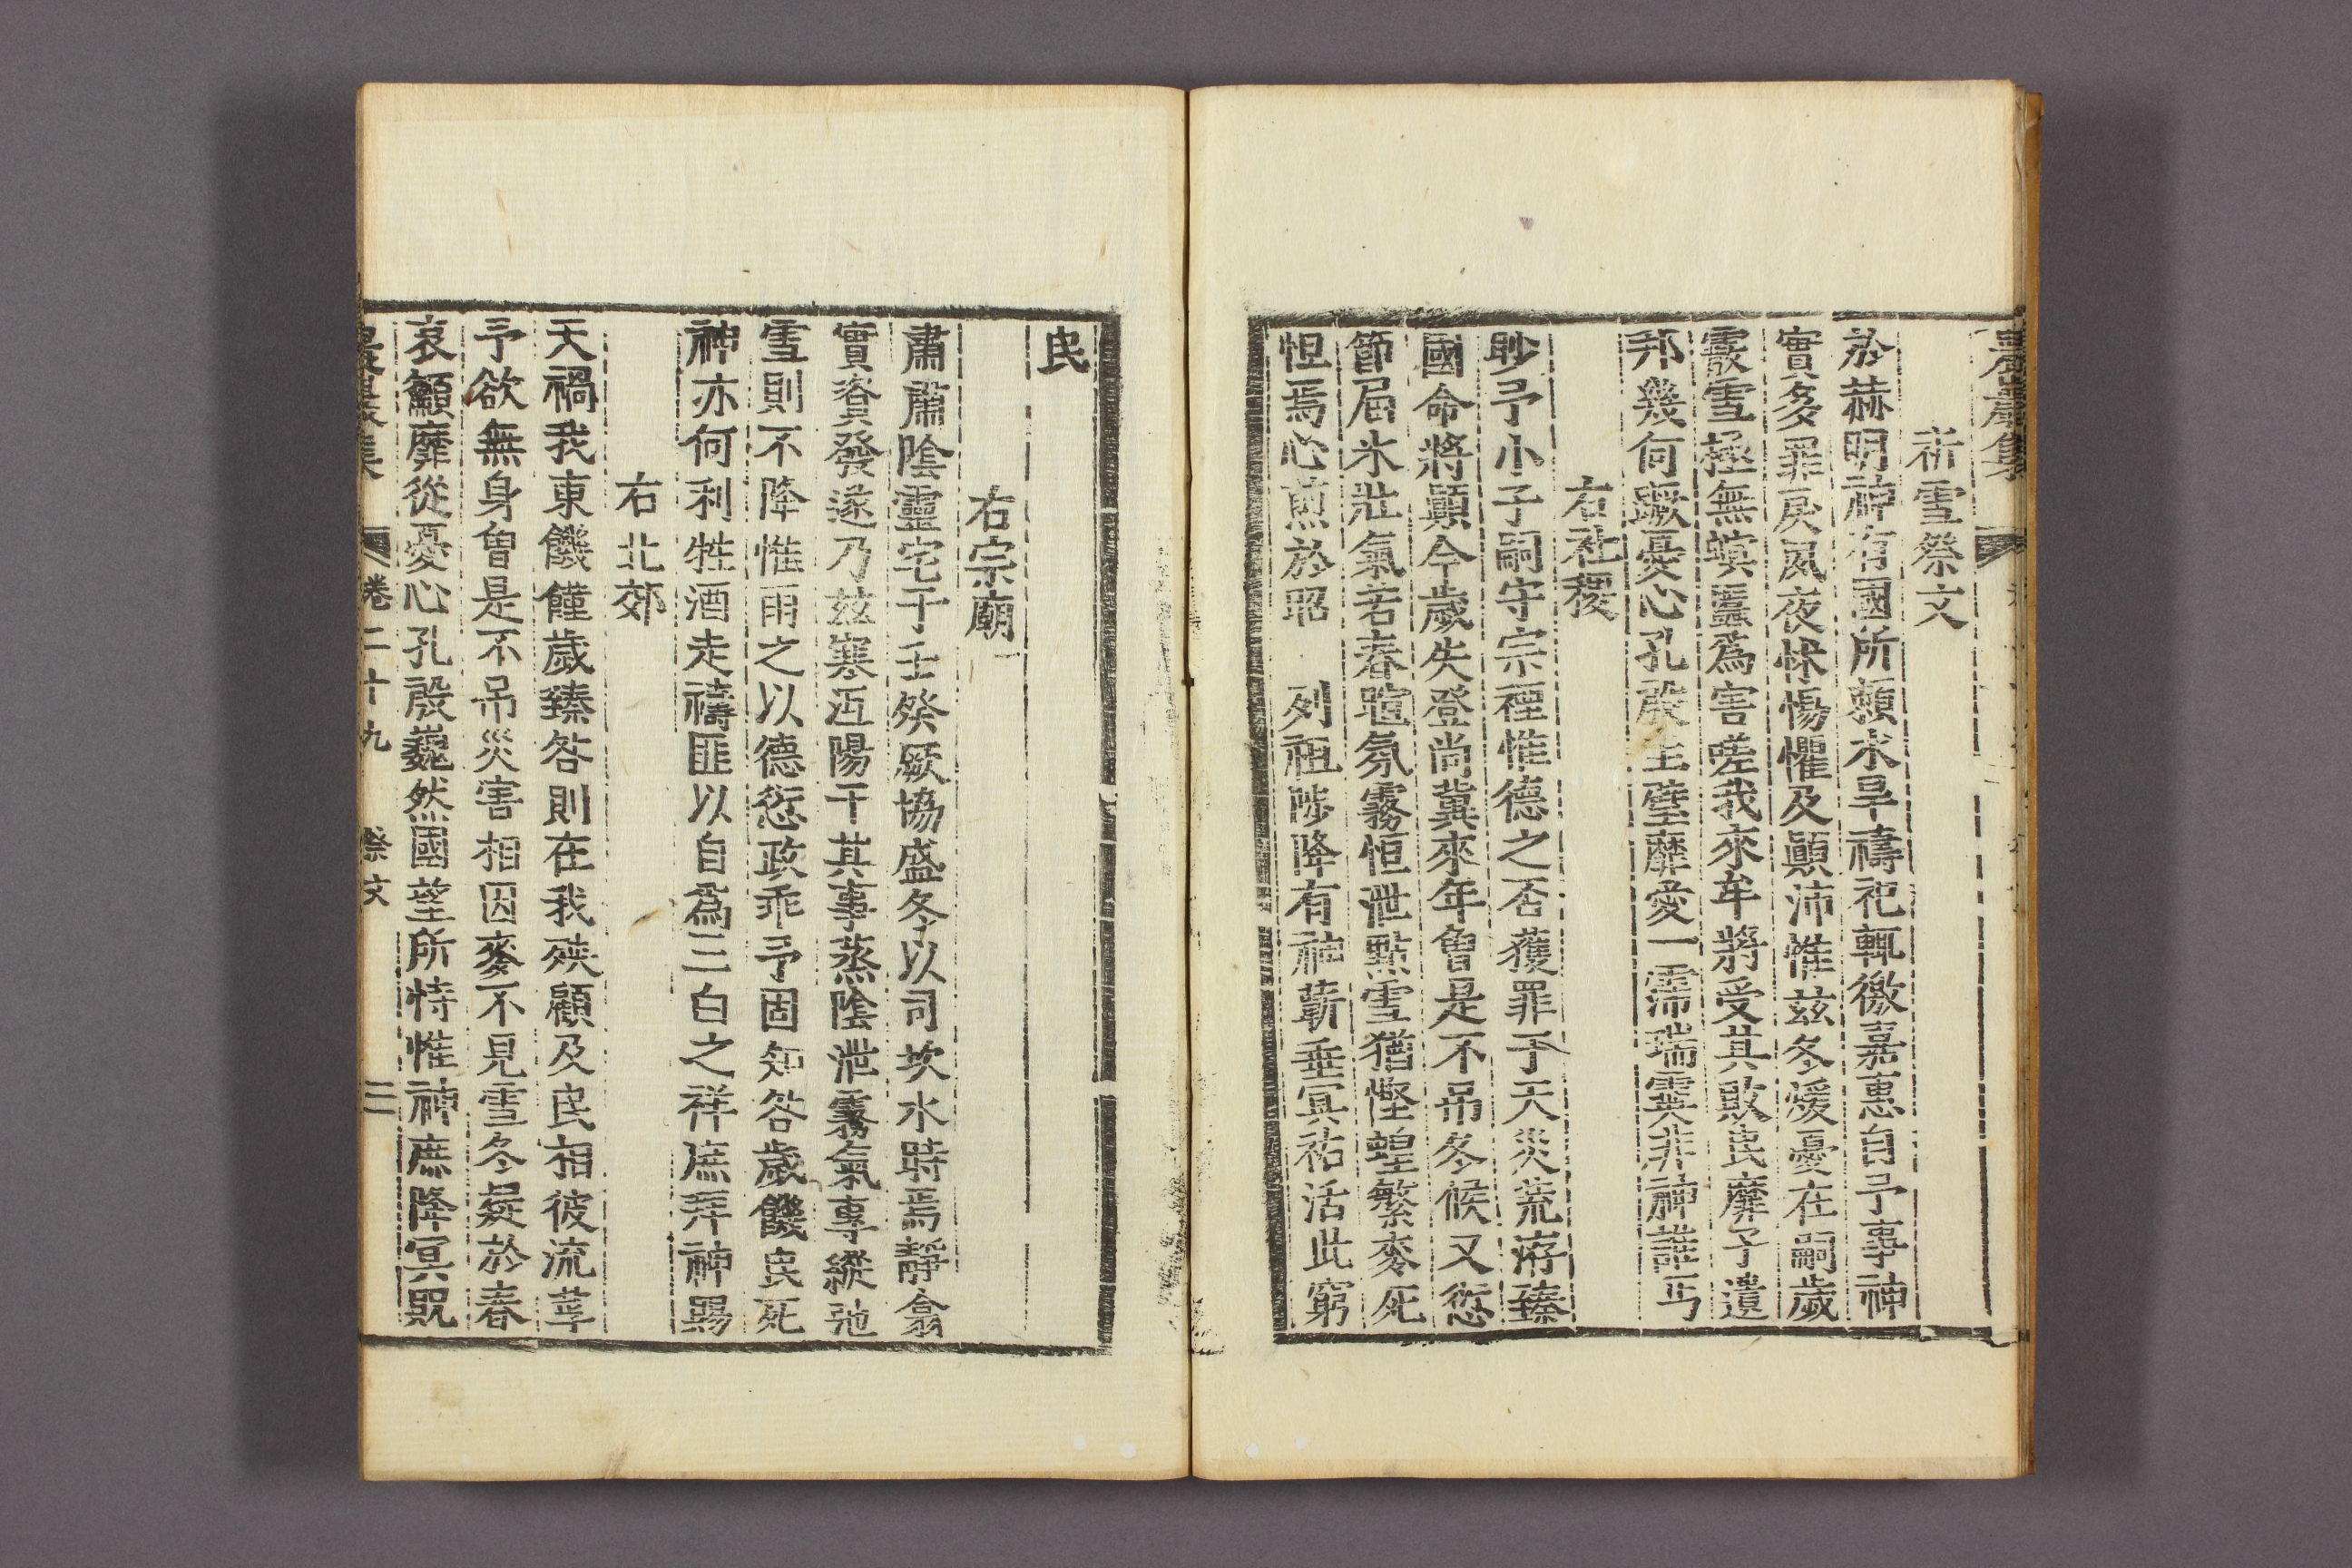 祈雪祭文
於赫明神有國所賴水旱禱祀輒徼嘉惠自予事神
實多罪戾夙夜怵惕懼及顚沛惟玆冬煖憂在嗣歲
霰雪極無螟𧒒爲害嗟我來牟將受其敗民靡孑遺
邦幾何蹶憂心孔殷圭璧靡愛一霈瑞霙非神誰丐
右社稷
眇予小子嗣守宗禋惟德之否獲罪于天災荒洊臻
國命將顚今歲失登尙冀來年曾是不吊冬候又愆
節屆氷壯氣若春暄氛霧恒泄點雪猶慳蝗繁麥死
怛焉心煎於昭 列祖陟降有神蘄垂冥祐活此窮
民
右宗廟
肅肅陰靈宅于壬癸厥協盛冬以司坎水時焉靜翕
實資發遂乃玆寒沍陽干其事蒸陰泄霧氣專縱弛
雪則不降惟雨之以德愆政乖予固知咎歲饑民死
神亦何利牲酒走禱匪以自爲三白之祥庶拜神賜
右北郊
天禍我東饑饉歲臻咎則在我殃顧及民相彼流莩
予欲無身曾是不吊災害相因麥不見雪冬疑於春
哀籲靡從憂心孔殷巍然國望所恃惟神庶降冥貺
卷二十九 祭文 三